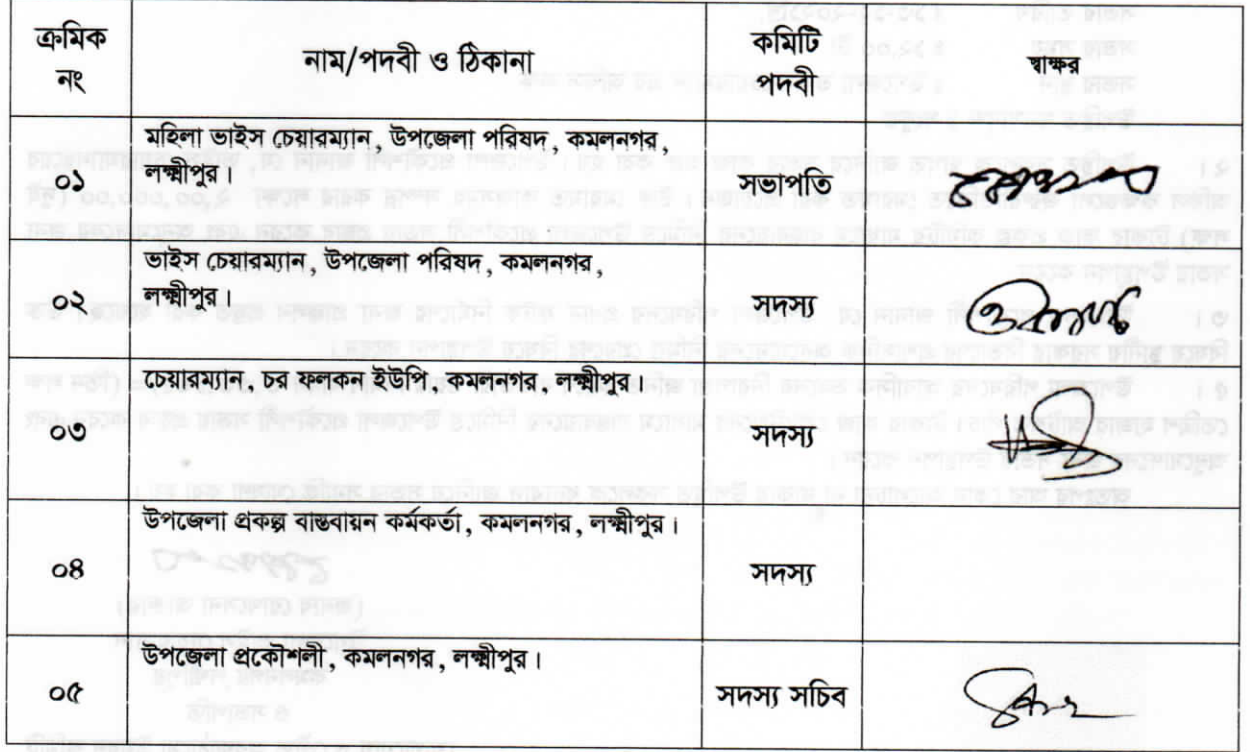 ক্রমিক নং
নাম/পদবী ও ঠিকানা
কমিটি পদবী
স্বাক্ষর
০১
মহিলা ভাইস চেয়ারম্যান, উপজেলা পরিষদ, কমলনগর,
লক্ষ্মীপুর।
সভাপতি
০২
ভাইস চেয়ারম্যান, উপজেলা পরিষদ, কমলনগর,
লক্ষ্মীপুর।
সদস্য
০৩
চেয়ারম্যান, চর ফলকন ইউপি, কমলনগর, লক্ষ্মীপুর।
সদস্য
০৪
উপজেলা প্রকল্প বাস্তবায়ন কর্মকর্তা, কমলনগর, লক্ষ্মীপুর।
সদস্য
০৫
উপজেলা প্রকৌশলী, কমলনগর, লক্ষ্মীপুর।
সদস্য সচিব